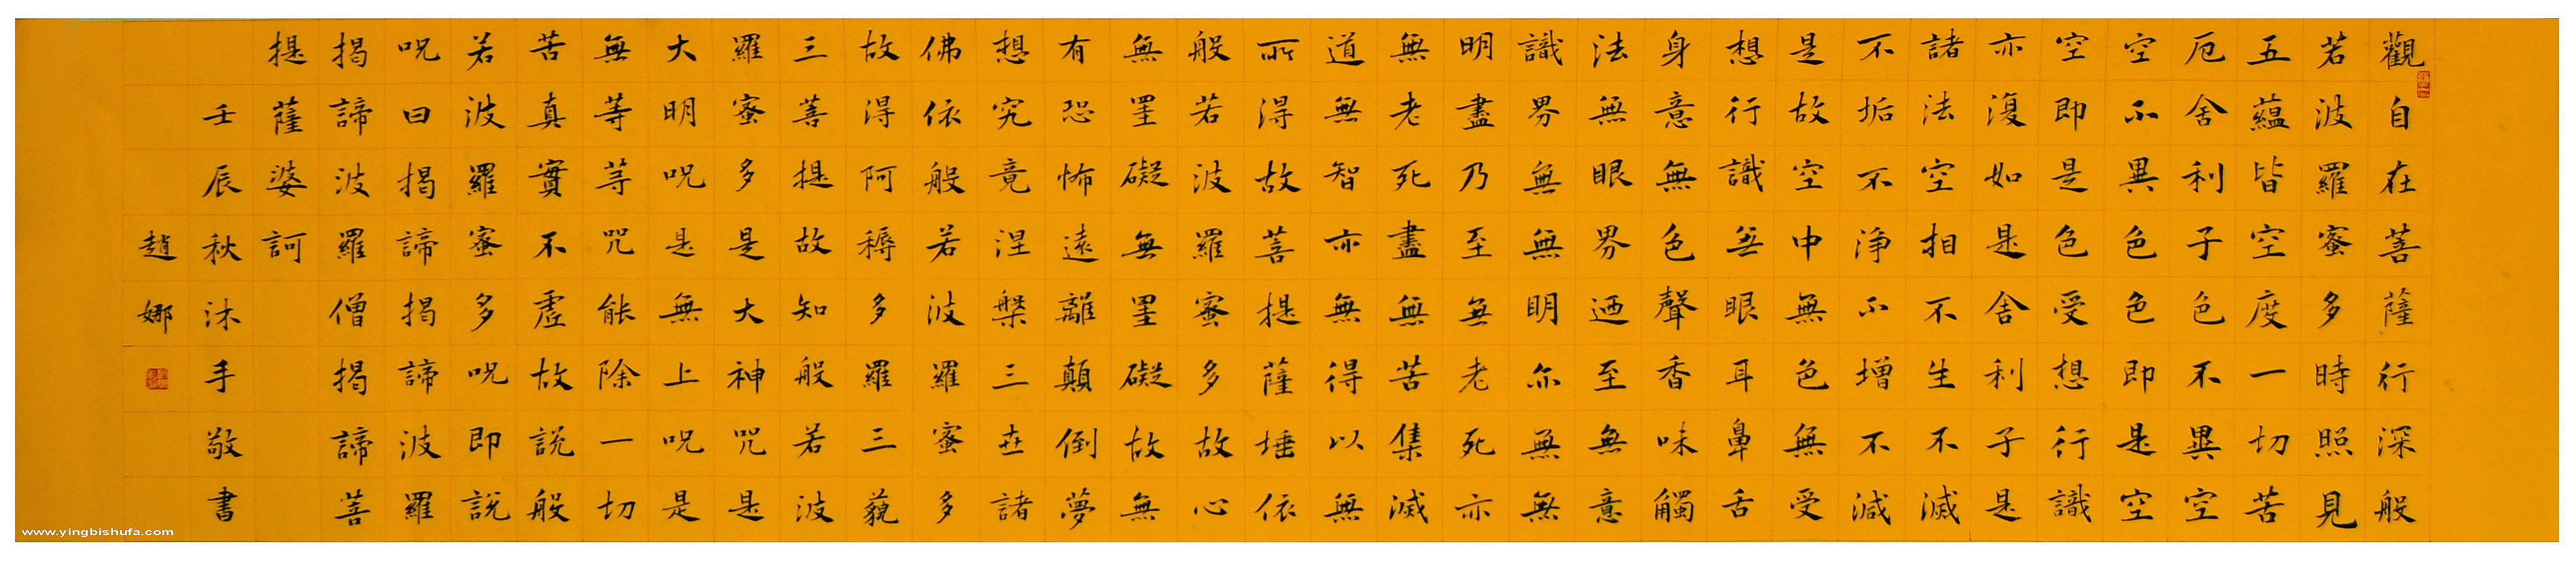 觀自在菩薩行深般
若波羅蜜多時照見
五蘊皆空度一切苦
厄舍利子色不異空
空不異色色即是空
空即是色受想行識
亦復如是舍利子是
諸法空相不生不滅
不垢不淨不增不減
是故空中無色無受
想行識無眼耳鼻舌
身意無色聲香味觸
法無眼界迺至無意
識界無無明亦無無
明盡乃至無老死亦
無老死盡無苦集滅
道無智亦無得以無
所得故菩提薩埵依
般若波羅蜜多故心
無罣礙無罣礙故無
有恐怖遠離顛倒夢
想究竟涅槃三世諸
佛依般若波羅蜜多
故得阿耨多羅三藐
三菩提故知般若波
羅蜜多是大神咒是
大明呪是無上呪是
無等等咒能除一切
苦真實不虛故說般
若波羅蜜多呪即說
呪曰揭諦揭諦波羅
揭諦波羅僧揭諦菩
提薩婆訶
壬辰秋沐手敬書
趙娜
www.yingbishufa.com